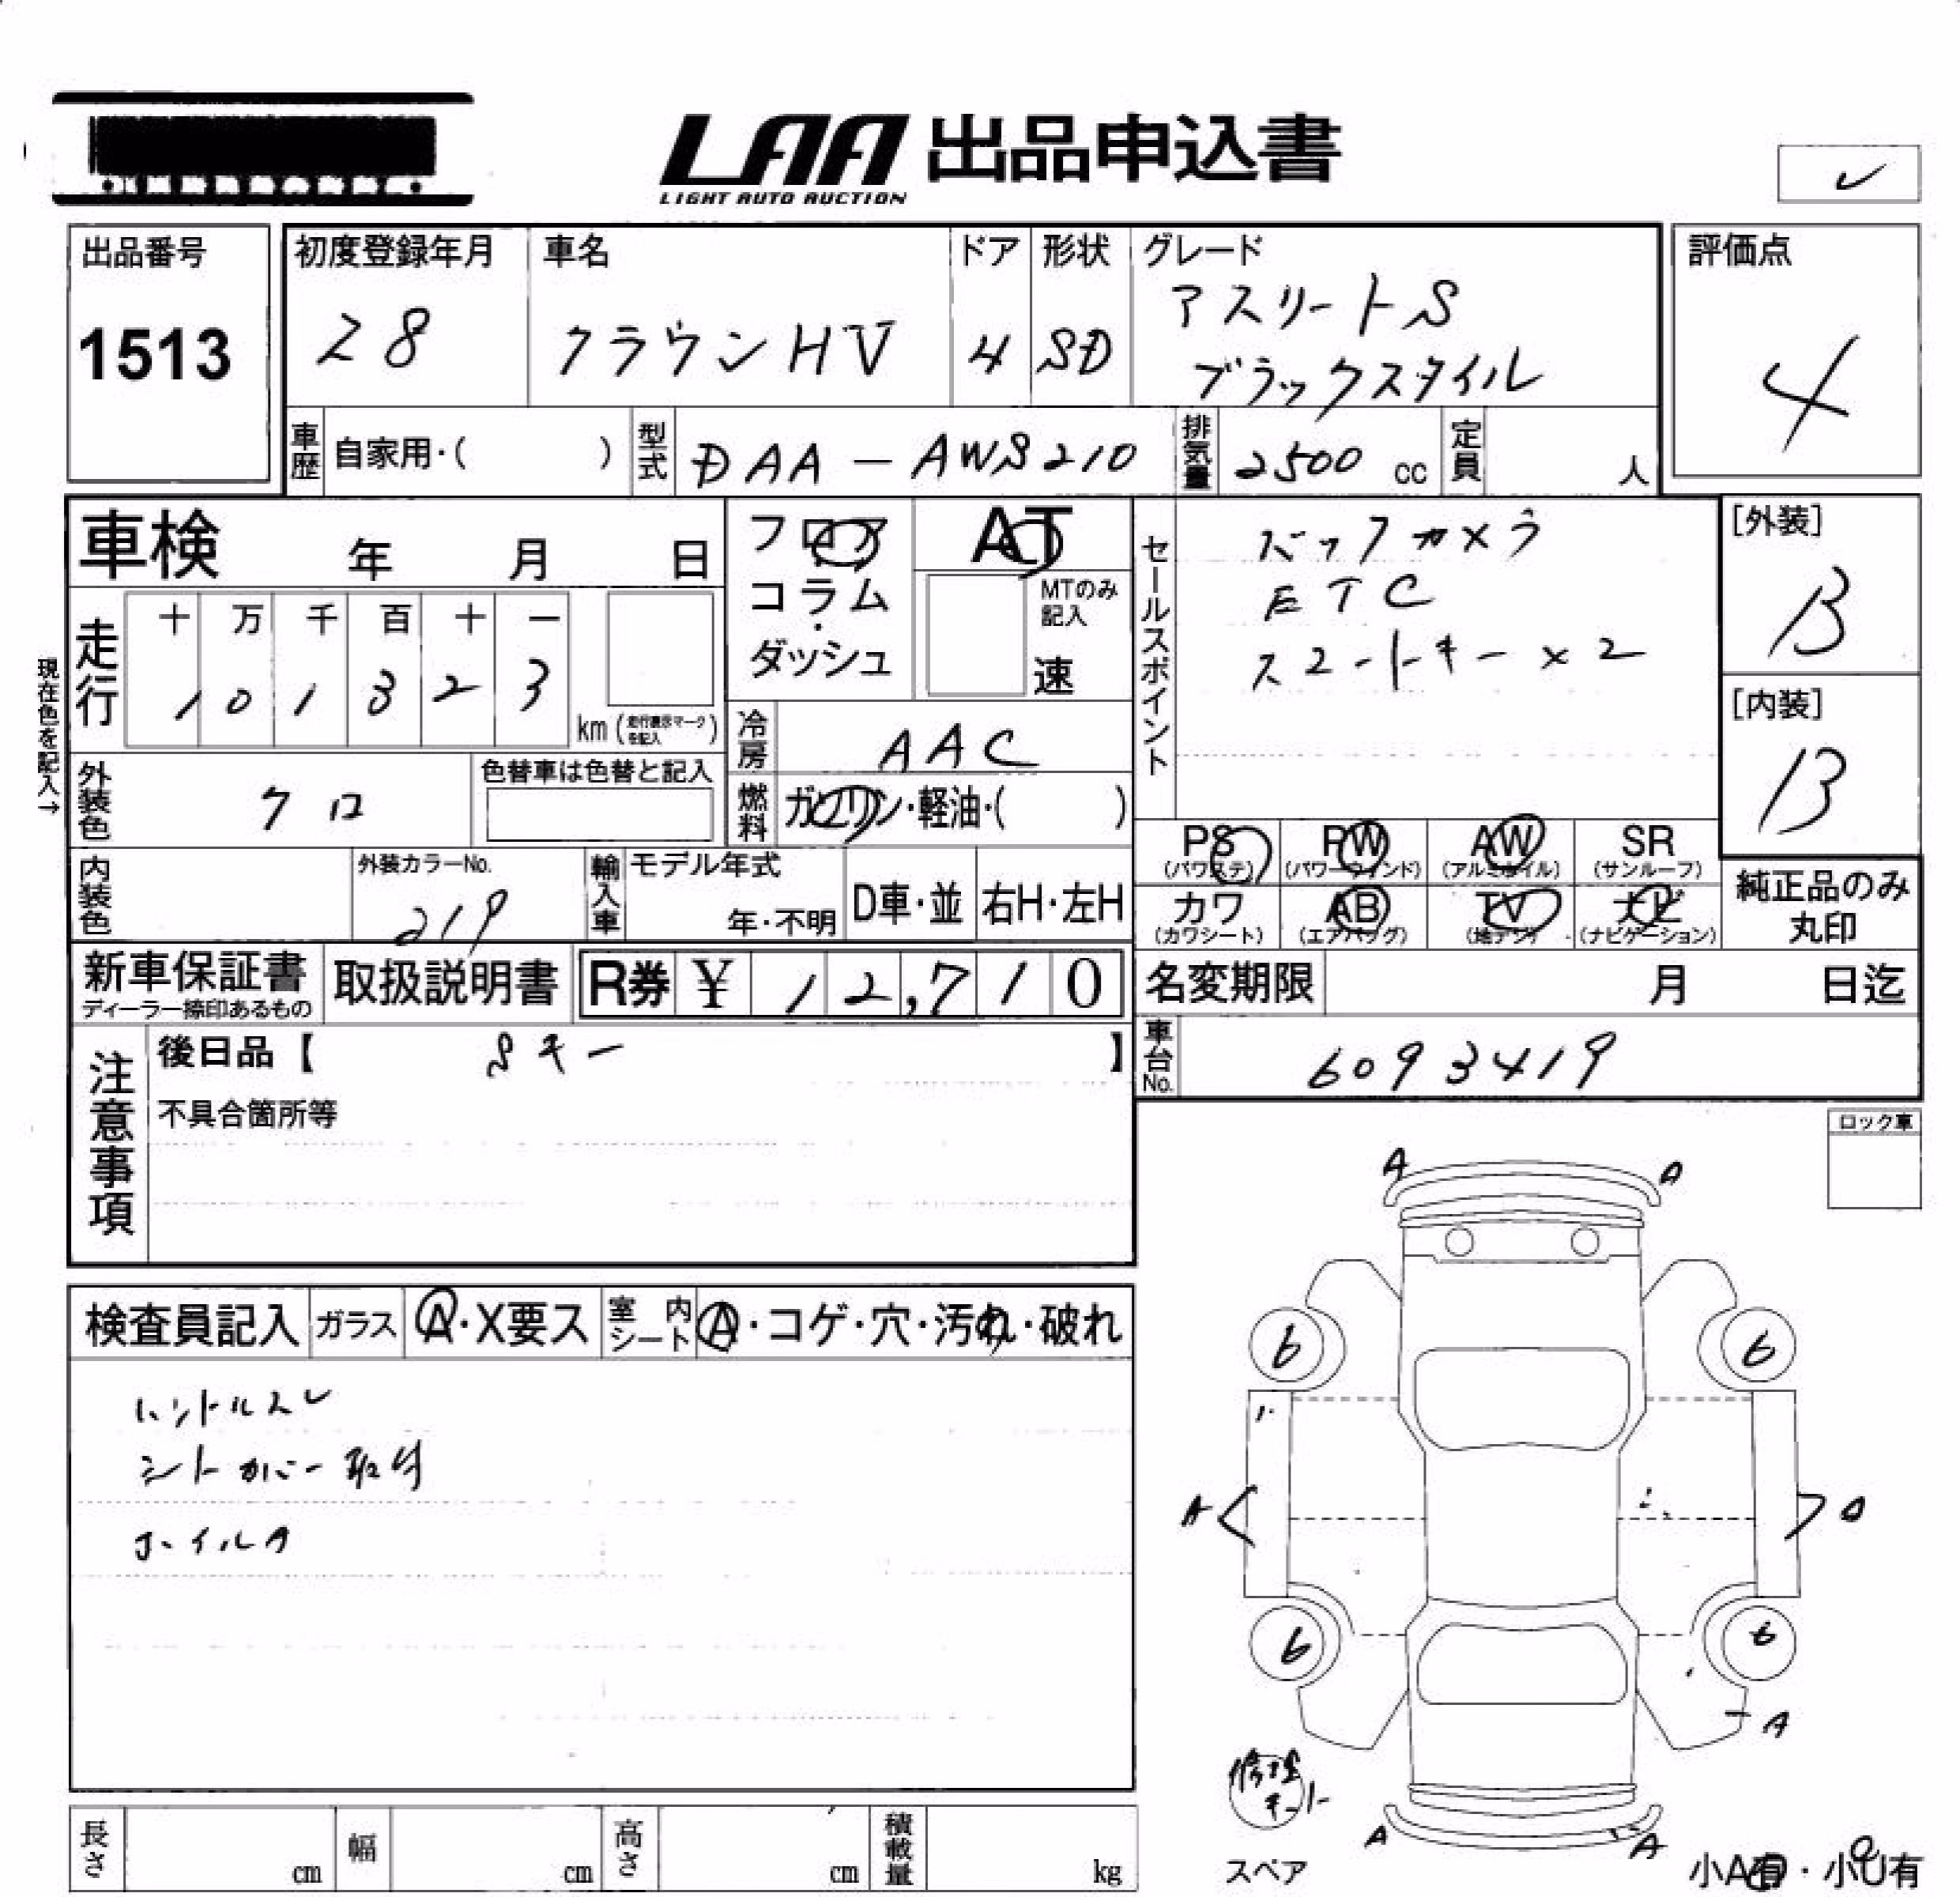 LAA 出品申込書
LIGHT AUTO AUCTION
出品番号
1513
初度登録年月
28
車名
クラウンHV
ドア
4
形状
SD
グレード
アスリートS
ブラックスタイル
評価点
4
車歴
自家用・( )
型式
DAA-AWS210
排気量
2500 cc
定員
人
車検 年 月 日
フロア
コラム
・
ダッシュ
AT
MTのみ
記入
速
セールスポイント
バックカメラ
ETC
スマートキー×2
[外装]
B
[内装]
B
現在色を記入→
走行
十 万 千 百 十 一
1 0 1 3 2 3
km (走行表示マークを記入)
冷房
AAC
外装色
クロ
色替車は色替と記入
燃料
ガソリン・軽油・( )
PS PW AW SR
(パワステ) (パワーウインド) (アルミホイル) (サンルーフ)
カワ AB TV ナビ
(カワシート) (エアバッグ) (地デジ) (ナビゲーション)
純正品のみ
丸印
内装色
外装カラーNo.
219
輸入車
モデル年式
年・不明
D車・並
右H・左H
新車保証書
ディーラー捺印あるもの
取扱説明書
R券 ¥ 12,710
名変期限 月 日迄
注意事項
後日品【 Sキー 】
不具合箇所等
車台No.
6093419
ロック車
検査員記入
ガラス
A・X要ス
室内シート
A・コゲ・穴・汚れ・破れ
ハンドルスレ
シートカバー取付
ホイルA
A A
6 6
A A
6 6
A
修理キット
A A
スペア
小A有・小U有
長さ cm
幅 cm
高さ cm
積載量 kg